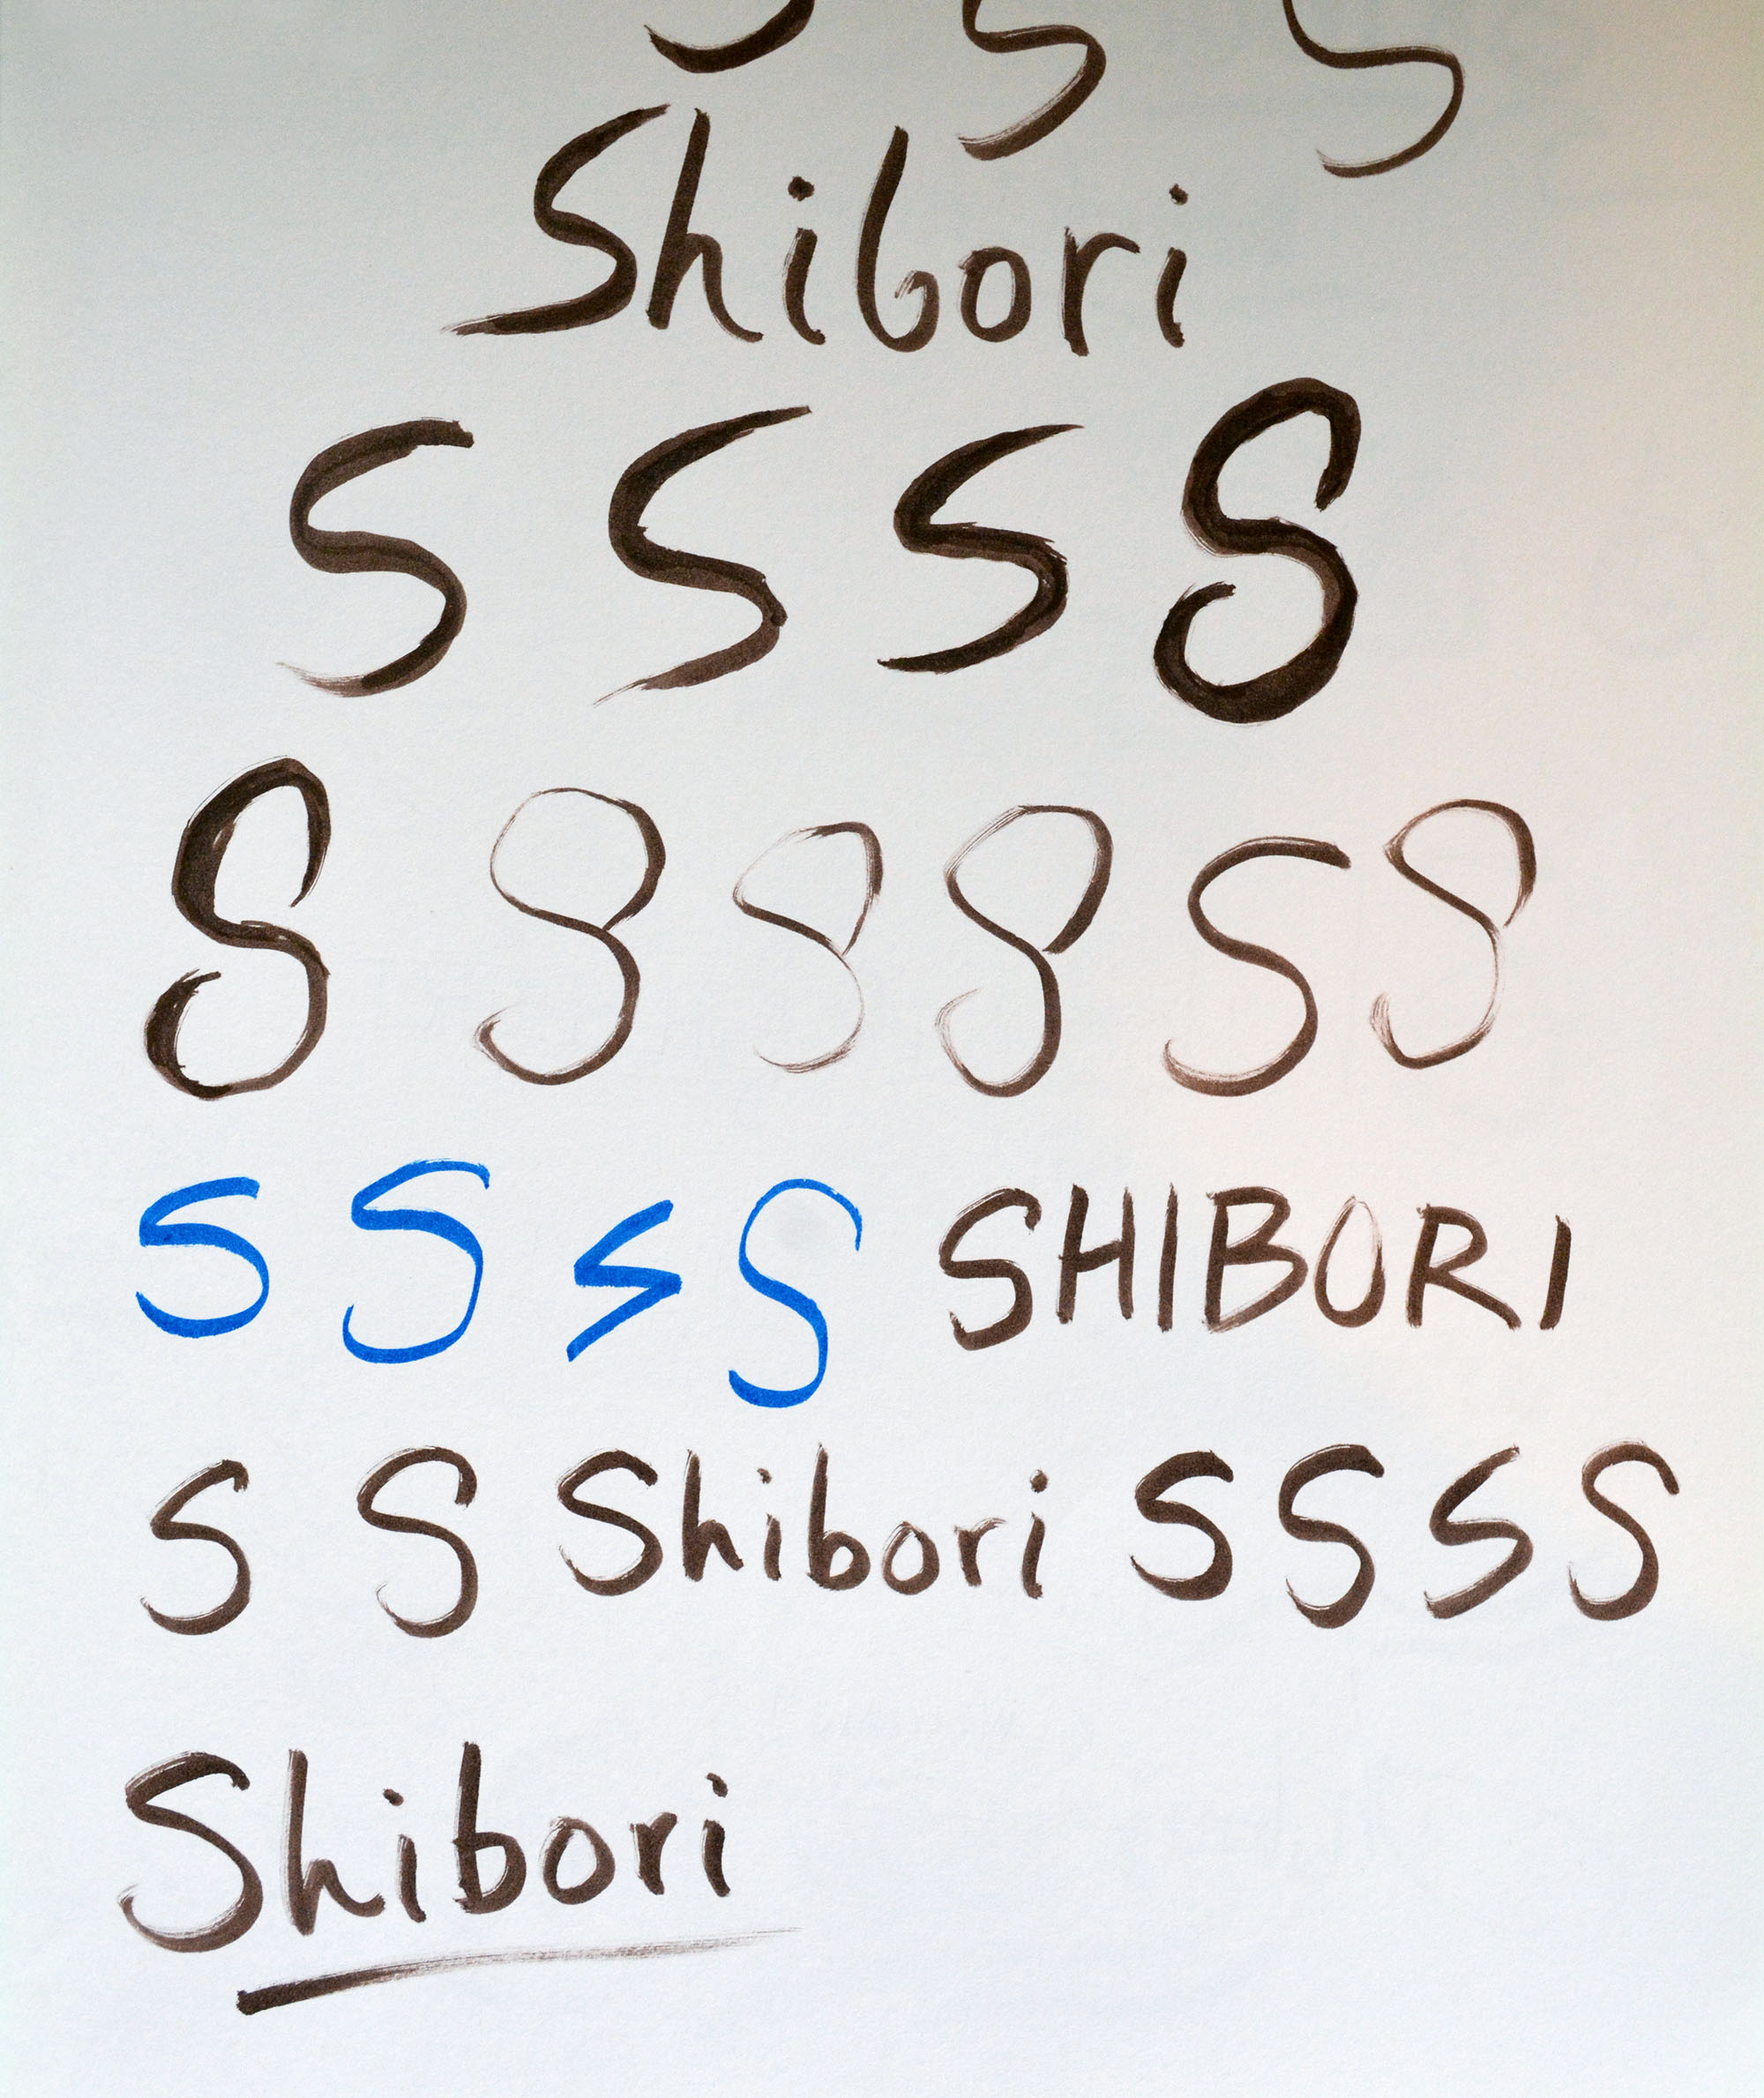 S S S
Shibori
S S S S
S S S S S S
S S S S SHIBORI
S S Shibori S S S S
Shibori